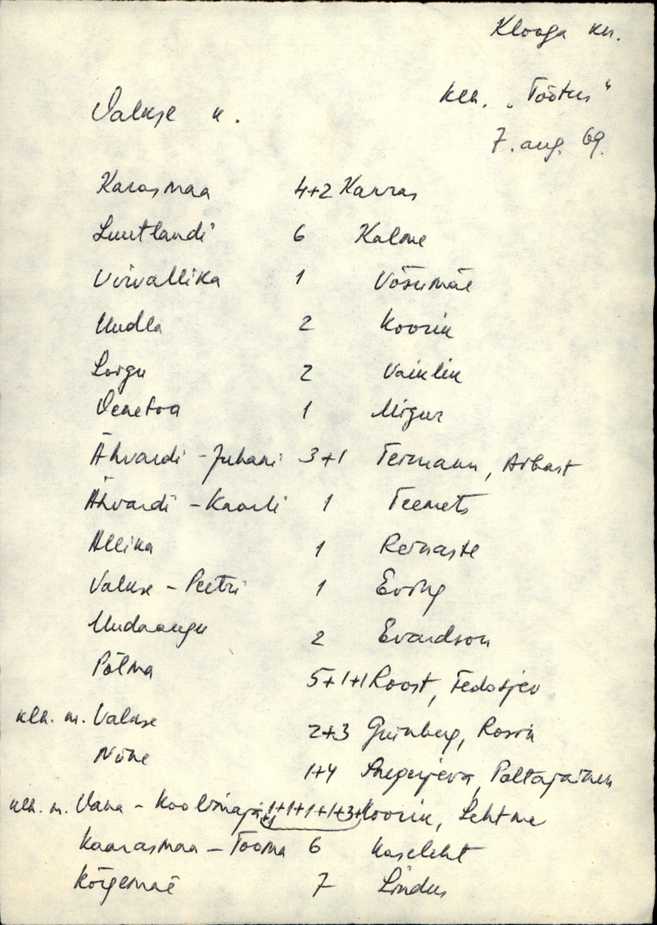 Klooga kn.
klh. „Töötus"
Valkse k.
7. aug. 69.
Karasmaa 4+2 Karras
Luutlandi 6 Kalme
Virvallika 1 Võsumäe
Uudla 2 Koorin
Lorgu 2 Vainlin
Venetoa 1 Migur
Ähvardi - Juhani 3+1 Termann, Arbast
Ähvardi - Kaarli 1 Teemets
Allika 1 Reinaste
Valkse - Peetri 1
Uudaaugu 2 Evardson
Põlma 5+1+1 Roost, Fedosjev
klh. m. Valkse 2+3 Grinberg, Rosin
Niine 1+4
klh. m. Vana - Koolimaja 1+1+1+1+3+1 Koorin, Lehtme
Kaarasmaa - Tooma 6 Kaseleht
Kõrgemäe 7 Lindus